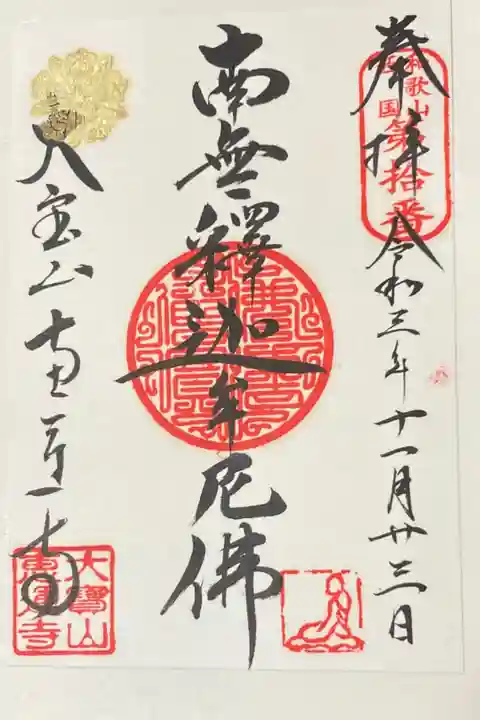 奉拝 令和三年十一月廿三日
和歌山
西国
第拾番
南無釋迦牟尼佛
大宝山
大寶山
惠運寺